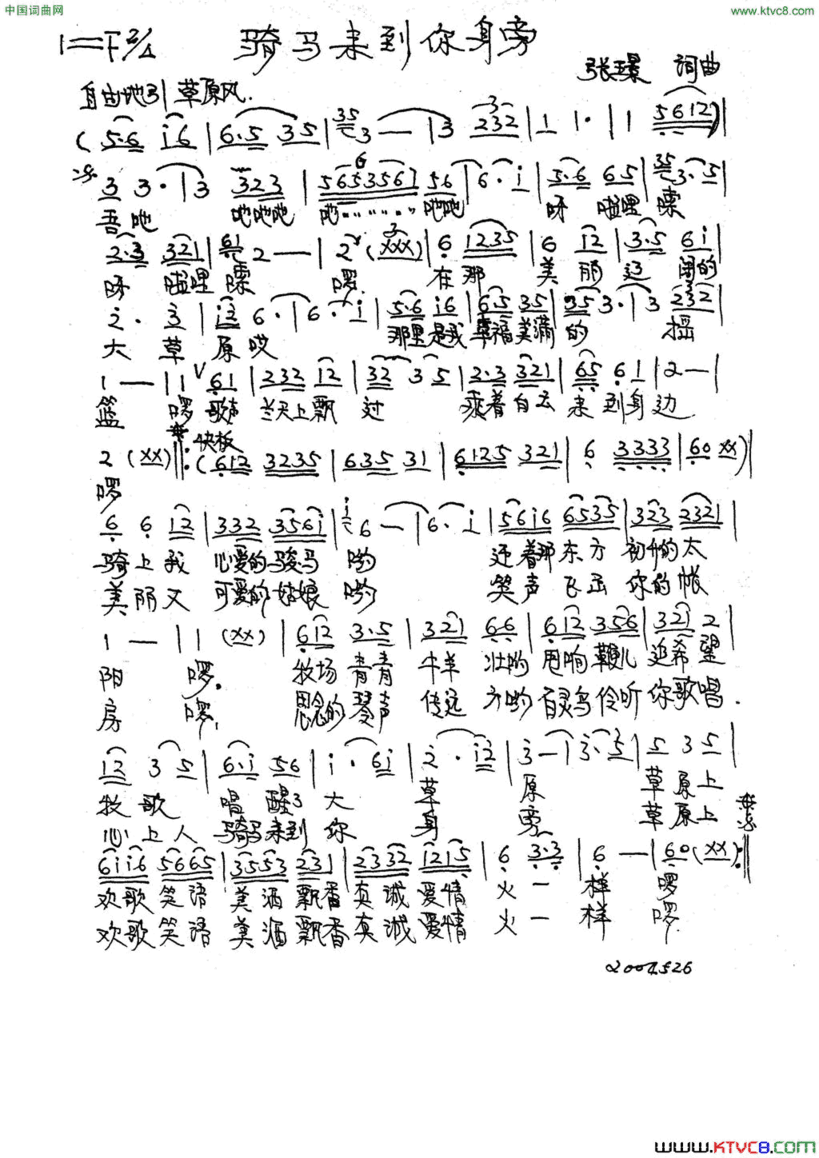 中国词曲网
www.ktvc8.com
1=F 2/4 骑马来到你身旁
张璟 词曲
自由地 草原风.
(5·6 i6 | 6·5 35 | 35 3 — | 3 232 | 1 1· | 1 5612) |
3 3· | 3 323 | 5653561 56 | 6· i | 5·6 65 | 35 3·5 |
吾吔 吔吔吔 吔 吔吔 呀 啦哩
2·3 321 | 61 2 — | 2 (xxx) | 6 1235 | 6 i2 | 3·5 6i |
呀 啦哩 啰. 在那 美丽辽阔的
2· 3 | i3 6· | 6· i | 5·6 i6 | 6·5 35 | 35 3· | 3 232 |
大草原哎 那里是我幸福美满的 摇
1 — | 1 61 | 232 12 | 32 35 | 2·3 321 | 65 61 | 2 — |
篮 啰 歌声 兰天上飘过 乘着白云来到身边
快板
2 (xx) ‖: (612 3235 | 635 31 | 6125 321 | 6 3333 | 60 xx) |
啰
6 6 12 | 332 356i | i 6 — | 6· i | 56i6 6535 | 323 2321 |
骑上我 心爱的骏马 哟 迎着那东方初升的太
美丽又 可爱的姑娘 哟 笑声飞出你的帐
1 — | 1 (xx) | 612 3·5 | 321 66 | 612 356 | 321 2 |
阳 啰. 牧场青青 牛羊壮哟 甩响鞭儿 追希望
房 啰, 思念的琴声 传远方哟 百灵鸟伶听你歌唱.
12 35 | 6·i 56 | i· 6i | 2· i2 | 3 — | 3·5 | 5 35 |
牧歌 唱醒了大草原 草原上
心上人 骑马来到你身旁 草原上
6ii6 5665 | 3553 231 | 2332 1215 | 6 3·3 | 6 — | 60 (xx) :‖
欢歌笑语 美酒飘香真诚爱情 火一样 啰
欢歌笑语 美酒飘香真诚爱情 火一样 啰.
www.KTVC8.com